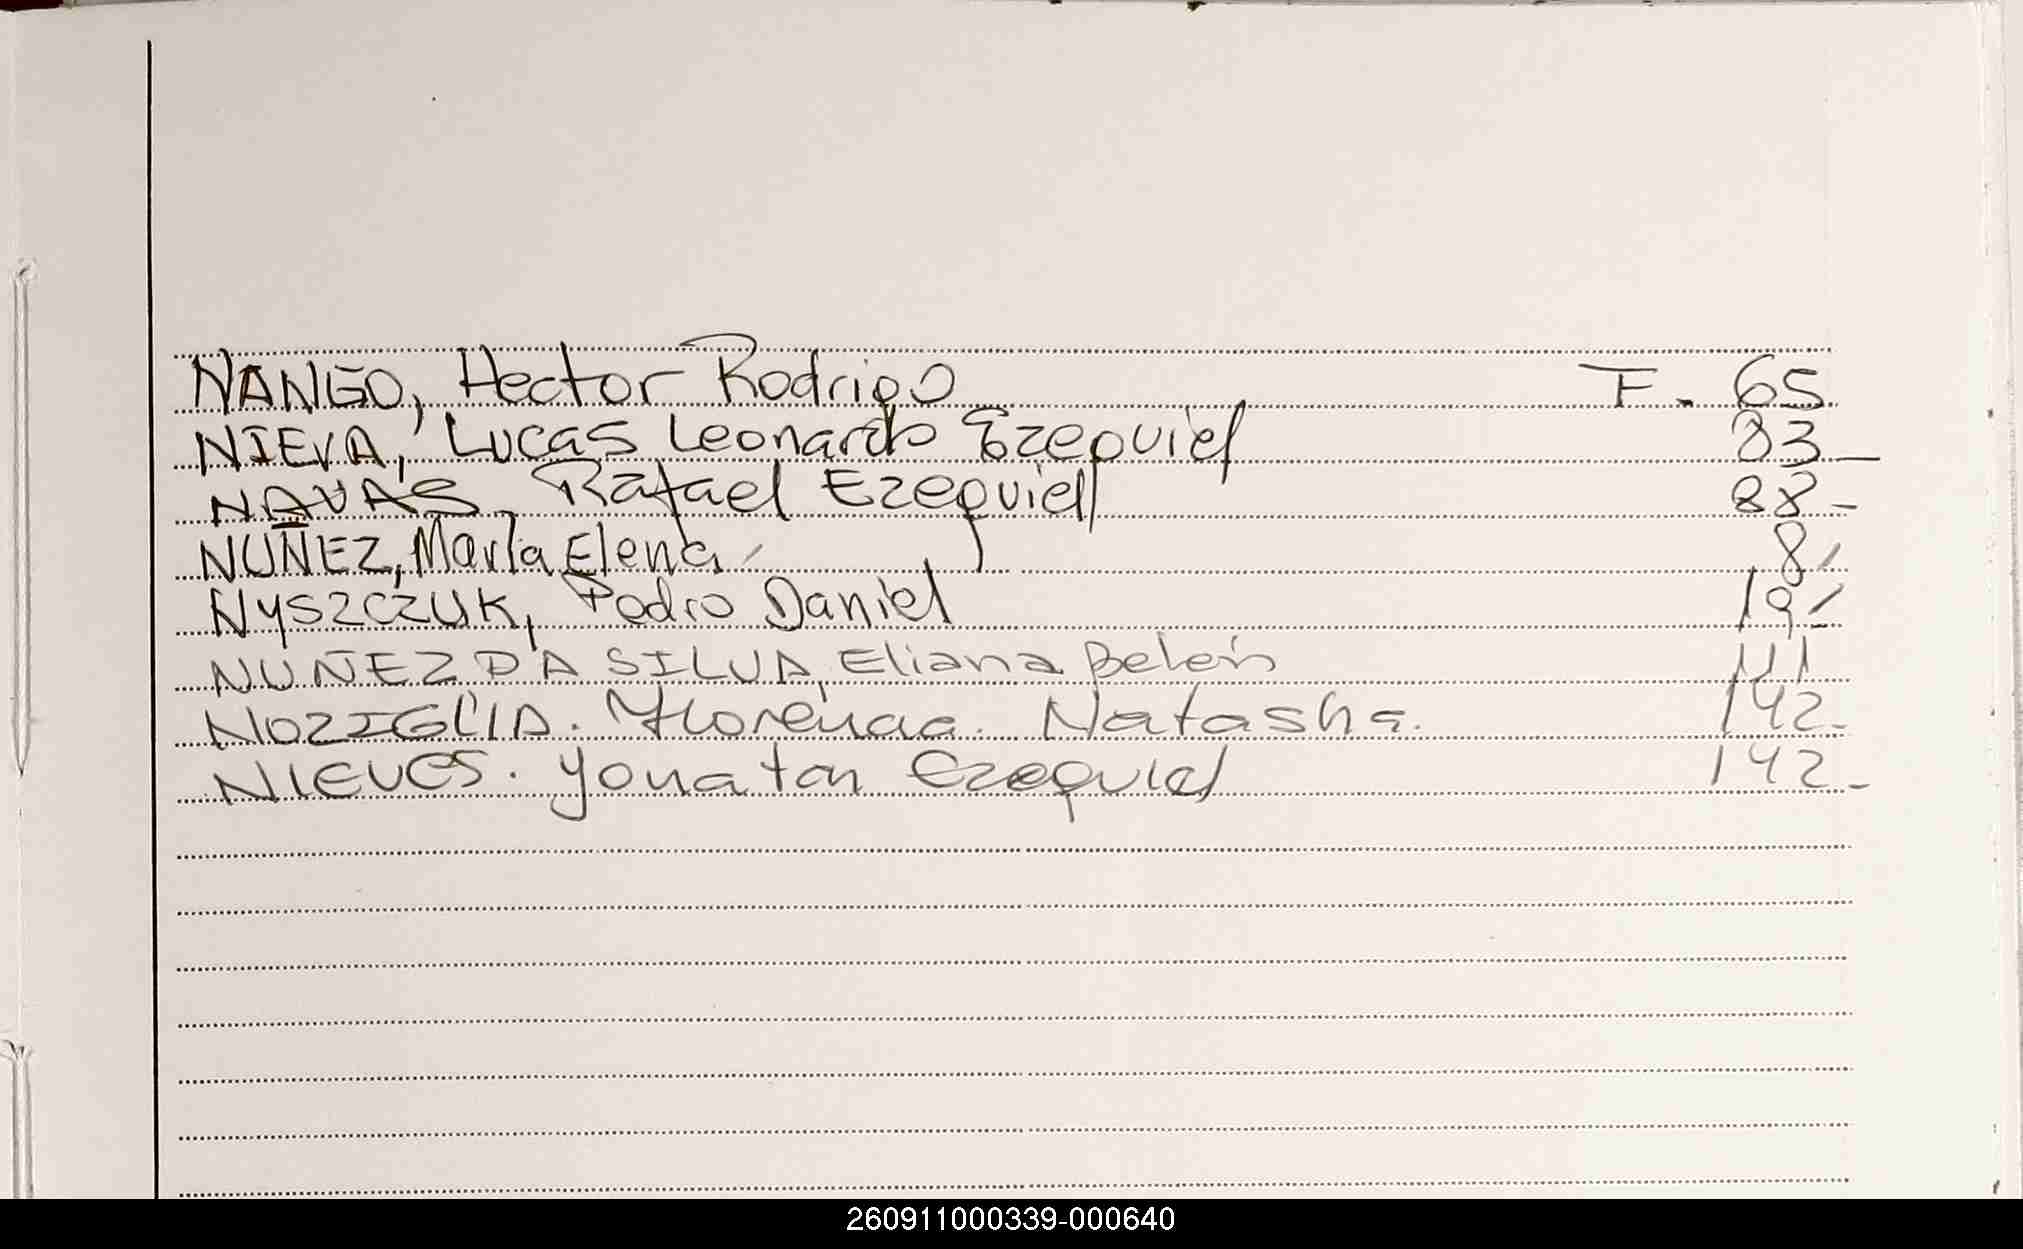 NANGO, Hector Rodrigo F. 65
NIEVA, Lucas Leonardo Ezequiel 83
NAVAS Rafael Ezequiel 88
NUÑEZ, María Elena 8
NYSZCZUK, Pedro Daniel 19
NUÑEZ DA SILVA, Eliana Belén 141
NOZIGLIA. Florencia. Natasha. 142
NIEVES. Yonatan Ezequiel 142
260911000339-000640